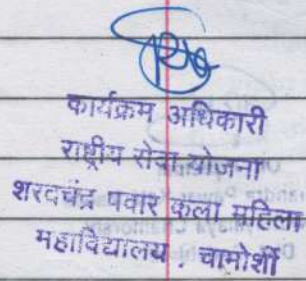 कार्यक्रम अधिकारी
राष्ट्रीय सेवा योजना
शरदचंद्र पवार कला महिला
महाविद्यालय, चामोर्शी